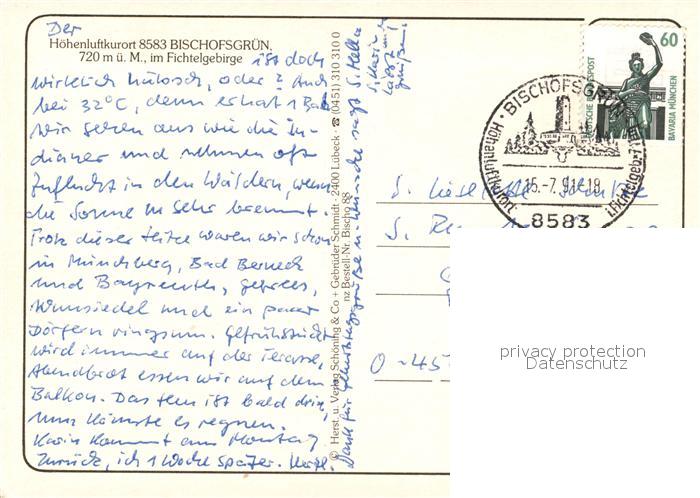 Der
Höhenluftkurort 8583 BISCHOFSGRÜN,
720 m ü. M., im Fichtelgebirge
ist doch
wirklich hübsch, oder? Auch
bei 32°C, denn er hat 1 Bad.
Wir sehen aus wie die In-
dianer und nehmen oft
Zuflucht in den Wäldern, wenn
die Sonne zu sehr brennt.
Trotz dieser Hitze waren wir schon
in Münchberg, Bad Berneck
und Bayreuth, Gefrees,
Wunsiedel und ein paar
Dörfern ringsum. Gefrühstückt
wird immer auf der Terasse,
Abendbrot essen wir auf dem
Balkon. Das fern ist bald drin,
nun könnte es regnen.
Karin kommt am Montag
zurück, ich 1 Woche später. Herzl.
Dank für Geburtstagsgrüße u. -wünsche sagt S. Hella
S. Karin
läßt
grüßen
© Herst. u. Verlag Schöning & Co + Gebrüder Schmidt · 2400 Lübeck · ☎ (0451) 310 310 0
nz Bestell-Nr. Bischo 88
60
DEUTSCHE BUNDESPOST
BAVARIA MÜNCHEN
BISCHOFSGRÜN
Höhenluftkurort
i. Fichtelgeb.
15.-7.91-18
8583
S. Liselotte
S.
O-45
privacy protection
Datenschutz